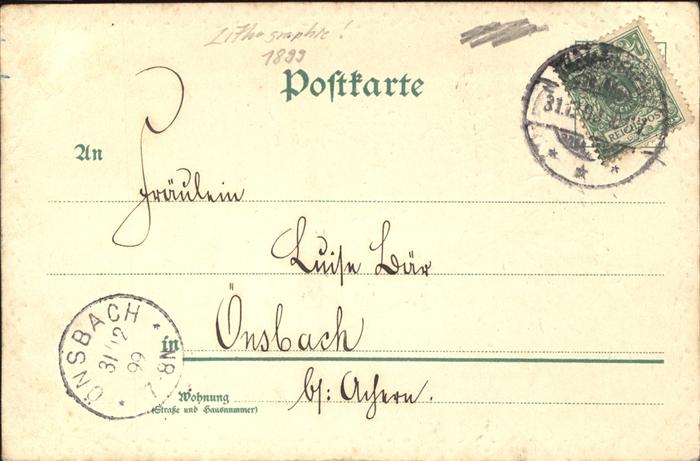 Lithographie!
1899
Postkarte
REICHSPOST
31.12
An
Fräulein
Luise Bär
in Önsbach
ÖNSBACH
31 12
99
7-8N
Wohnung
(Straße und Hausnummer)
bs: Achern.